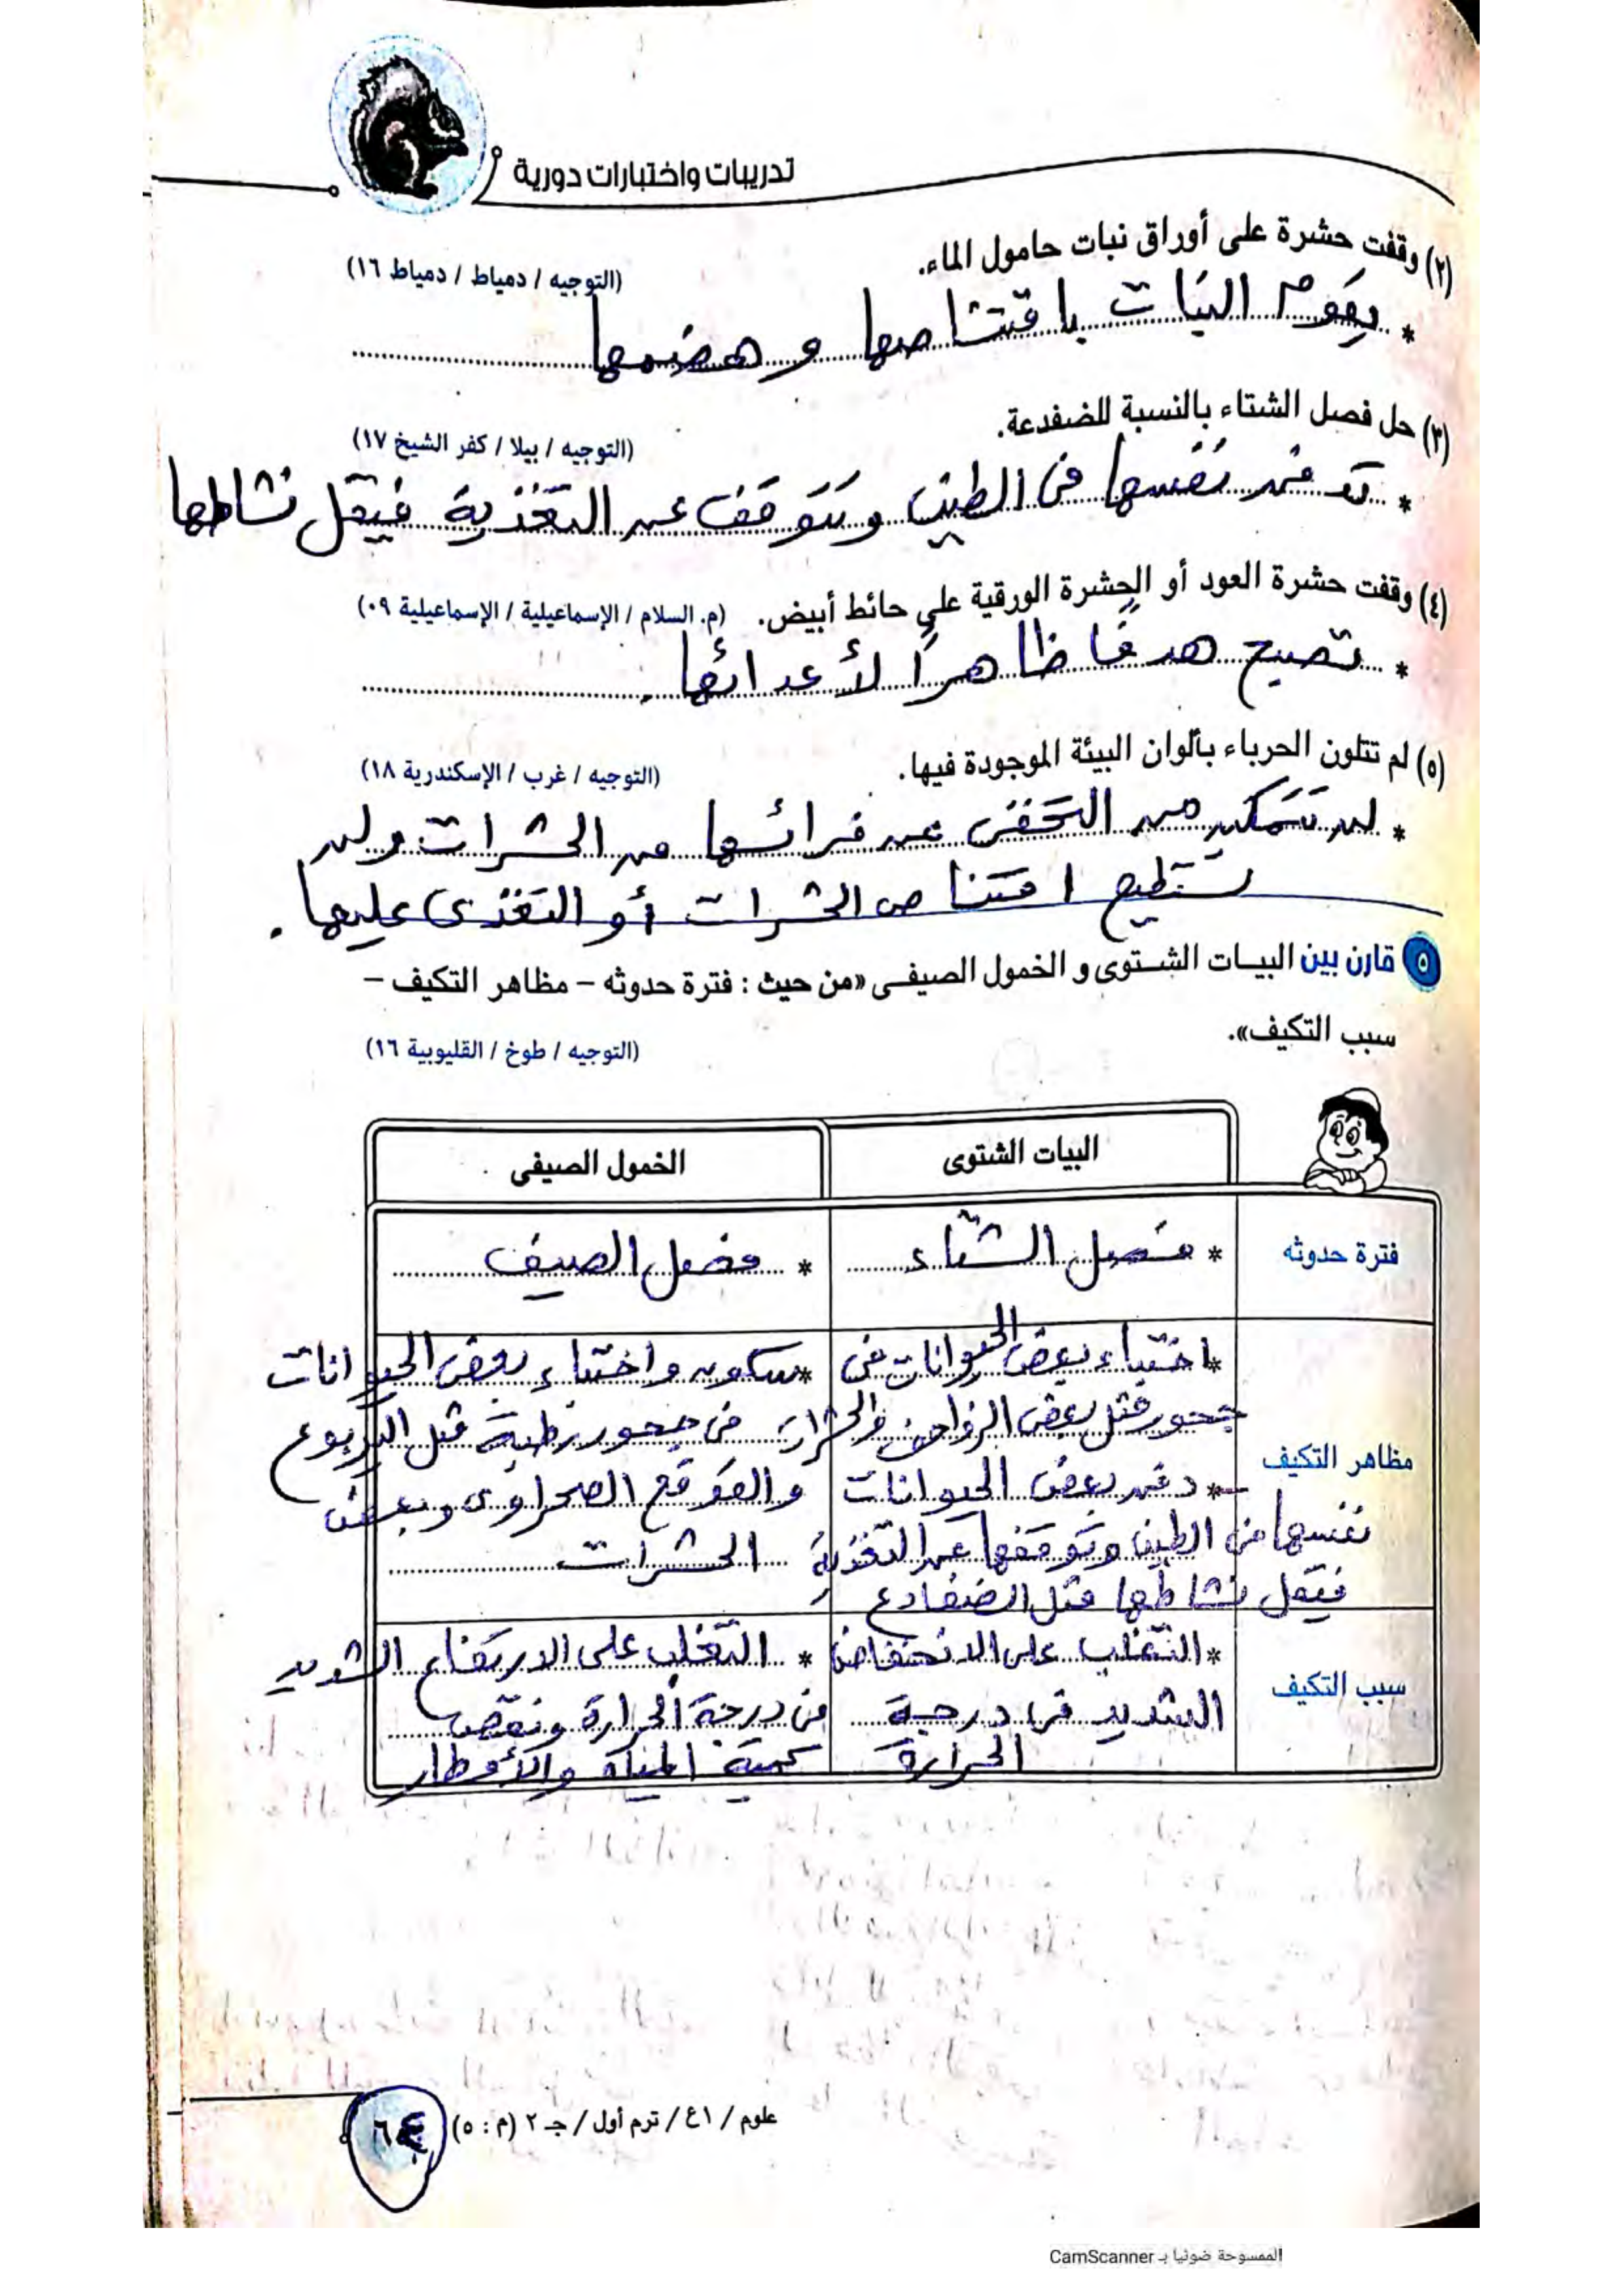 تدريبات واختبارات دورية
(٢) وقفت حشرة على أوراق نبات حامول الماء.
(التوجيه / دمياط / دمياط ١٦)
* يقوم النبات باقتناصها وهضمها
(٣) حل فصل الشتاء بالنسبة للضفدعة.
(التوجيه / بيلا / كفر الشيخ ١٧)
* تدفن نفسها فى الطين وتتوقف عن التغذية فيقل نشاطها
(٤) وقفت حشرة العود أو الحشرة الورقية على حائط أبيض.
(م. السلام / الإسماعيلية / الإسماعيلية ٠٩)
* تصبح هدفًا ظاهرًا لأعدائها.
(٥) لم تتلون الحرباء بألوان البيئة الموجودة فيها.
(التوجيه / غرب / الإسكندرية ١٨)
* لن تتمكن من التخفى عن فرائسها من الحشرات ولن
تستطيع اقتناص الحشرات أو التغذى عليها.
٥ قارن بين البيـات الشـتوى و الخمول الصيفـى «من حيث : فترة حدوثه – مظاهر التكيف –
سبب التكيف».
(التوجيه / طوخ / القليوبية ١٦)
البيات الشتوى
الخمول الصيفى
فترة حدوثه
* فصل الشتاء
* فصل الصيف
مظاهر التكيف
* اختباء بعض الحيوانات فى
جحور مثل بعض الزواحف والحشرات
* دفن بعض الحيوانات
نفسها فى الطين وتوقفها عن التغذية
فيقل نشاطها مثل الضفادع
* سكون واختباء بعض الحيوانات
فى جحور رطبة مثل اليربوع
والقوقع الصحراوى وبعض
الحشرات
سبب التكيف
* التغلب على الانخفاض
الشديد فى درجة
الحرارة
* التغلب على الارتفاع الشديد
فى درجة الحرارة ونقص
كمية المياه والأمطار
علوم / ٤١ / ترم أول / جـ ٢ (م : ٥)
الممسوحة ضوئيا بـ CamScanner